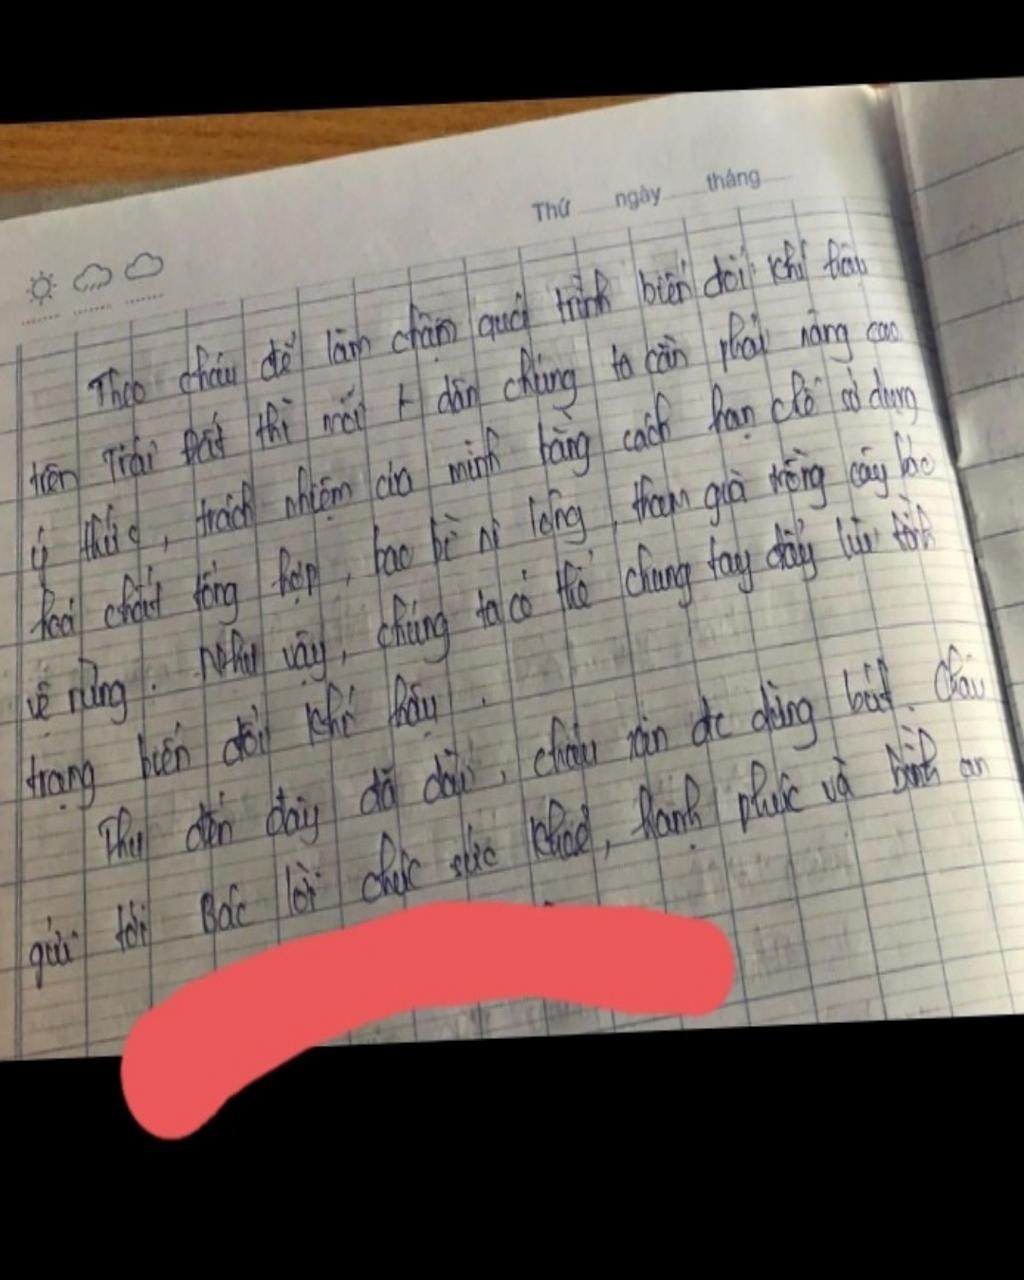 Thứ ngày tháng
Theo cháu để làm chậm quá trình biến đổi khí hậu
trên Trái Đất thì mỗi dân chúng ta cần phải nâng cao
ý thức, trách nhiệm của mình bằng cách hạn chế sử dụng
hoá chất tổng hợp, bao bì ni lông, tham gia trồng cây bảo
vệ rừng. Như vậy, chúng ta có thể chung tay đẩy lùi tình
trạng biến đổi khí hậu.
Thư đến đây đã dài, cháu xin dc dừng bút. Cháu
gửi tới Bác lời chúc sức khoẻ, hạnh phúc và bình an